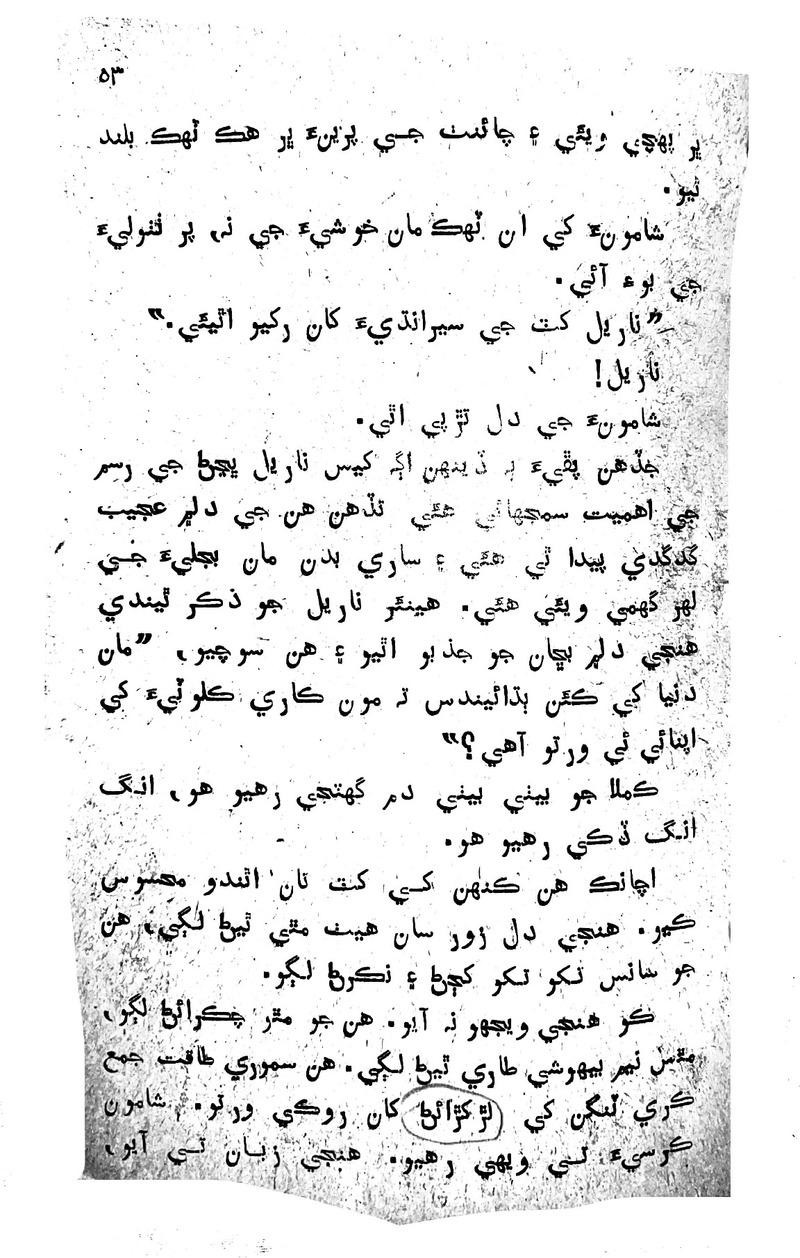 ٥٣
۾ پهچي ويئي ۽ چائنٺ جي پرينءَ ڀر هڪ ٽهڪ بلند
ٿيو.
شامونءَ کي ان ٽهڪ مان خوشيءَ جي نہ، پر ٺٺوليءَ
جي بوءِ آئي.
”ناريل کٽ جي سيرانڌيءَ کان رکيو اٿيئي.“
ناريل!
شامونءَ جي دل تڙپي اٿي.
جڏهن پڦيءَ ٻہ ڏينهن اڳہ کيس ناريل ڀڃڻ جي رسم
جي اهميت سمجهائي هئي تڏهن هن جي دلم عجيب
گدگدي پيدا ٿي هئي ۽ ساري بدن مان بجليءَ جي
لهر گهمي ويئي هئي. هينئر ناريل جو ذڪر ٿيندي
هنجي دلم بڇان جو جذبو اٿيو ۽ هن سوچيو، ”مان
دنيا کي ڪئن ٻڌائيندس تہ مون ڪاري ڪلوٽيءَ کي
اپنائي ٿي ورتو آهي؟“
ڪملا جو بيٺي بيٺي دم گهٽجي رهيو هو، انگ
انگ ڏڪي رهيو هو.
اچانڪ هن ڪنهن کي کٽ تان اٿندو محسوس
ڪيو. هنجي دل زور سان هيٺ مٿي ٿيڻ لڳي، هن
جو سانس تکو تکو کڄڻ ۽ نڪرڻ لڳو.
ڪو هنجي ويجهو نہ آيو. هن جو مٿر چڪرائڻ لڳو،
مٿس نيم بيهوشي طاري ٿيڻ لڳي. هن سموري طاقت جمع
ڪري ٽنگن کي لڙکڙائڻ کان روڪي ورتو. شامون
ڪرسيءَ تي ويهي رهيو. هنجي زبان تي آيو،